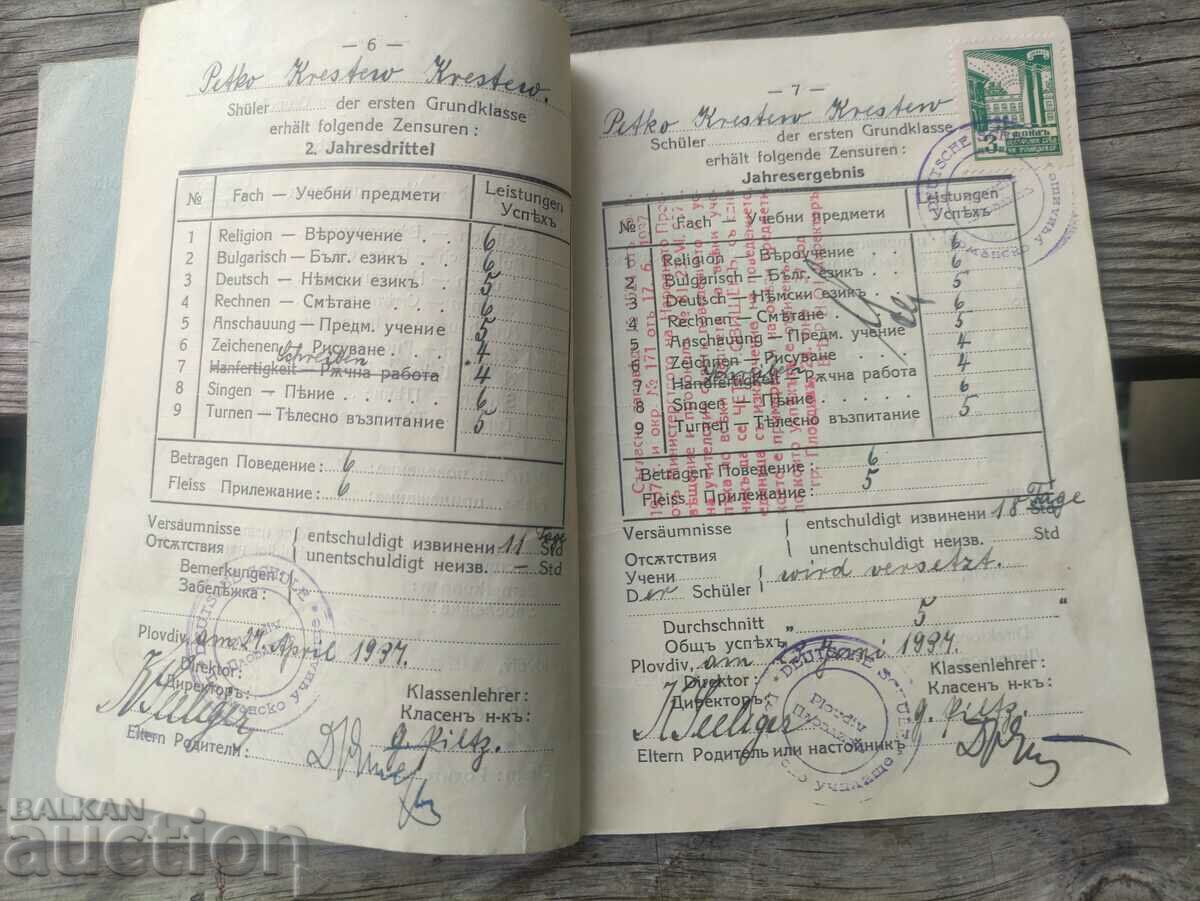 — 6 —
Petko Krestew Krestew.
Schüler der ersten Grundklasse
erhält folgende Zensuren:
2. Jahresdrittel
№ Fach — Учебни предмети Leistungen Успѣхъ
1 Religion — Вѣроучение . . . 6
2 Bulgarisch — Бълг. езикъ . . 6
3 Deutsch — Нѣмски езикъ . . 5
4 Rechnen — Смѣтане . . . . 6
5 Anschauung — Предм. учение 5
6 Zeichenen — Рисуване . . 4
Schreiben
7 Hanfertigkeit — Рѫчна работа 4
8 Singen — Пѣние . . . . . 6
9 Turnen — Тѣлесно възпитание 5
Betragen Поведение: 6
Fleiss Прилежание: 6
Versäumnisse entschuldigt извинени 11 Tage Std
Отсѫтствия unentschuldigt неизв. — Std
Bemerkungen:
Забелѣжка:
Plovdiv, am 24. April 1937.
Direktor:
Директоръ:
Klassenlehrer:
Класенъ н-къ:
K Seeliger
g. Pietz.
Eltern Родители:
DEUTSCHE SCHULE
Plovdiv
— 7 —
Petko Krestew Krestew
Schüler der ersten Grundklasse
erhält folgende Zensuren:
Jahresergebnis
№ Fach — Учебни предмети Leistungen Успѣхъ
1 Religion — Вѣроучение . . . 6
2 Bulgarisch — Бълг. езикъ . . 6
3 Deutsch — Нѣмски езикъ . . 5
4 Rechnen — Смѣтане . . . . 6
5 Anschauung — Предм. учение 5
6 Zeichnen — Рисуване . . . 4
7 Handfertigkeit — Рѫчна работа 4
8 Singen — Пѣние . . . . . 6
9 Turnen — Тѣлесно възпитание 5
Betragen Поведение: 6
Fleiss Прилежание: 5
Versäumnisse entschuldigt извинени 18 Tage Std
Отсѫтствия unentschuldigt неизв. Std
Учени
Der Schüler wird versetzt.
Durchschnitt „ 5 “
Общъ успѣхъ
Plovdiv, am Juni 1937.
Direktor:
Директоръ:
Klassenlehrer:
Класенъ н-къ:
K Seeliger
g. Pietz.
Eltern Родитель или настойникъ
DEUTSCHE SCHULE
Plovdiv
3
ФОНДЪ
и окр. № 171 отъ 17. 6. 1937
BALKAN
auction